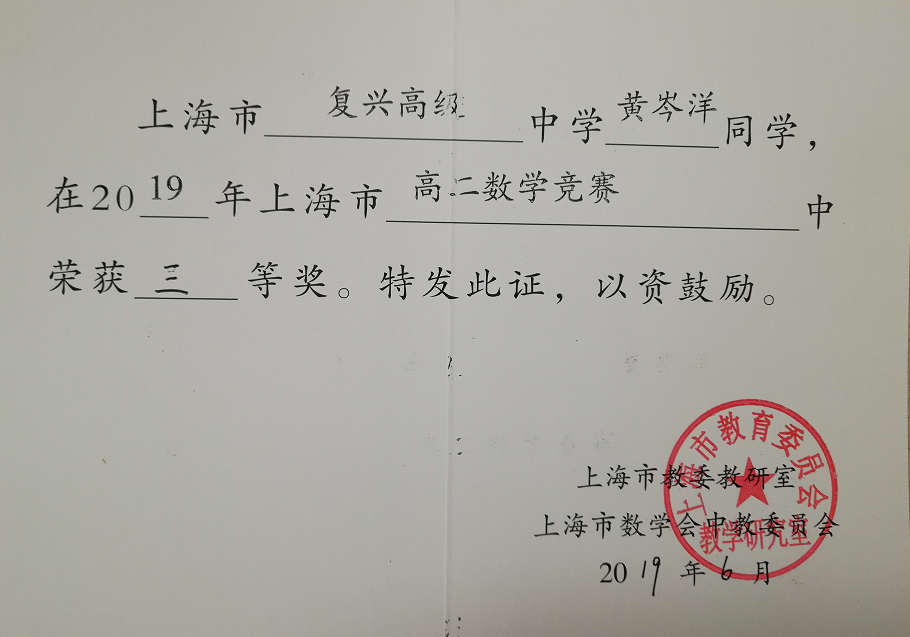 上海市复兴高级中学黄岑洋同学，
在2019年上海市高二数学竞赛中
荣获三等奖。特发此证，以资鼓励。
上海市教委教研室
上海市数学会中教委员会
2019年6月
上海市教育委员会
教学研究室